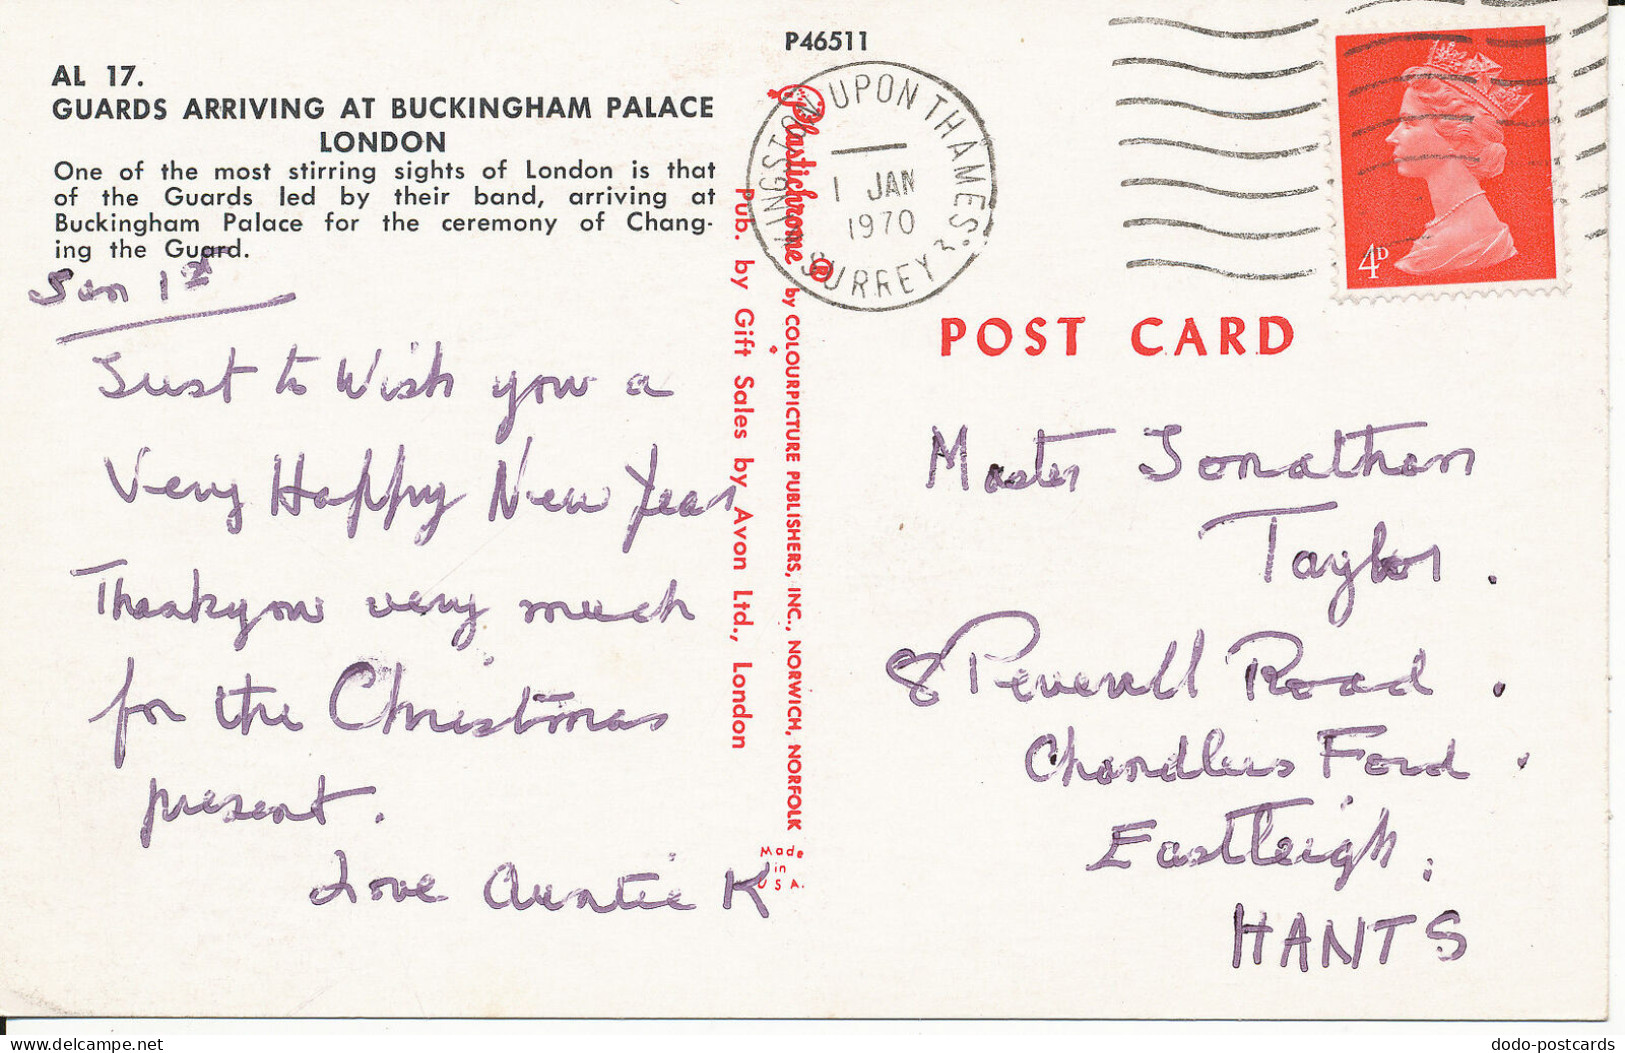 P46511
AL 17.
GUARDS ARRIVING AT BUCKINGHAM PALACE
LONDON
One of the most stirring sights of London is that
of the Guards led by their band, arriving at
Buckingham Palace for the ceremony of Chang-
ing the Guard.
Jan 1st
Just to Wish you a
Very Happy New Year
Thankyou very much
for the Christmas
present.
Love Auntie K
Pub. by Gift Sales by Avon Ltd., London
Plastichrome ® by COLOURPICTURE PUBLISHERS, INC., NORWICH, NORFOLK
Made
in
USA.
KINGSTON UPON THAMES
1 JAN
1970
SURREY
4D
POST CARD
Master Jonathan
Taylor.
8 Peverell Road.
Chandlers Ford.
Eastleigh.
HANTS
delcampe.net
dodo-postcards